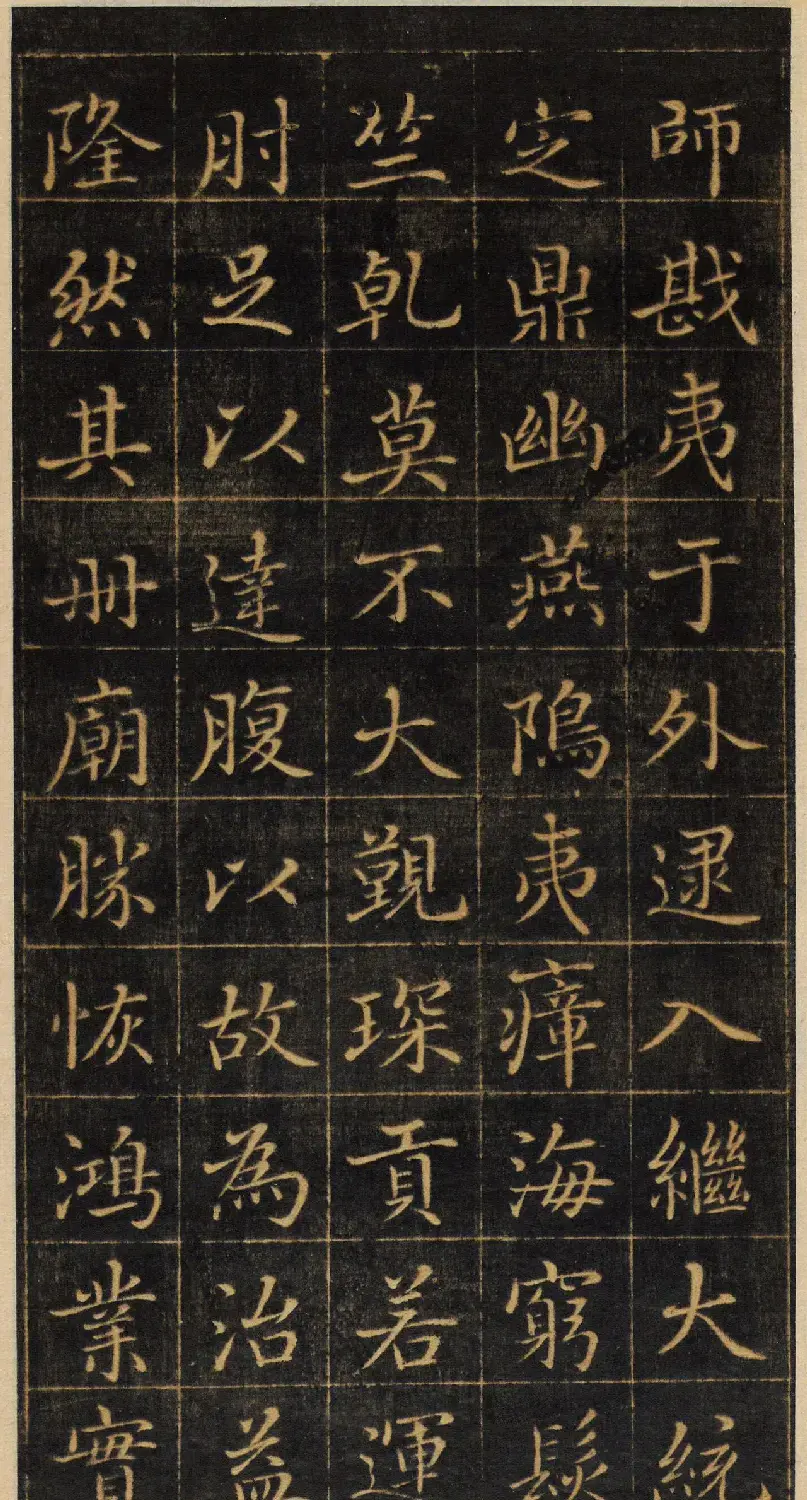 師戡夷于外逮入繼大統
定鼎幽燕隝夷瘴海窮髮
竺乾莫不大覲琛貢若運
肘足以達腹以故為治益
隆然其冊廟勝恢鴻業實